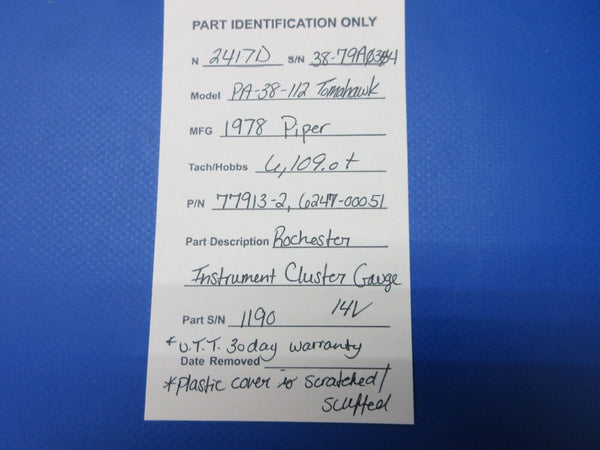 PART IDENTIFICATION ONLY
N 2417D S/N 38-79A0384
Model PA-38-112 Tomahawk
MFG 1978 Piper
Tach/Hobbs 6,109.0t
P/N 77913-2, 6247-00051
Part Description Rochester
Instrument Cluster Gauge
Part S/N 1190 14V
* U.T.T. 30day warranty
Date Removed
*plastic cover is scratched/
scuffed